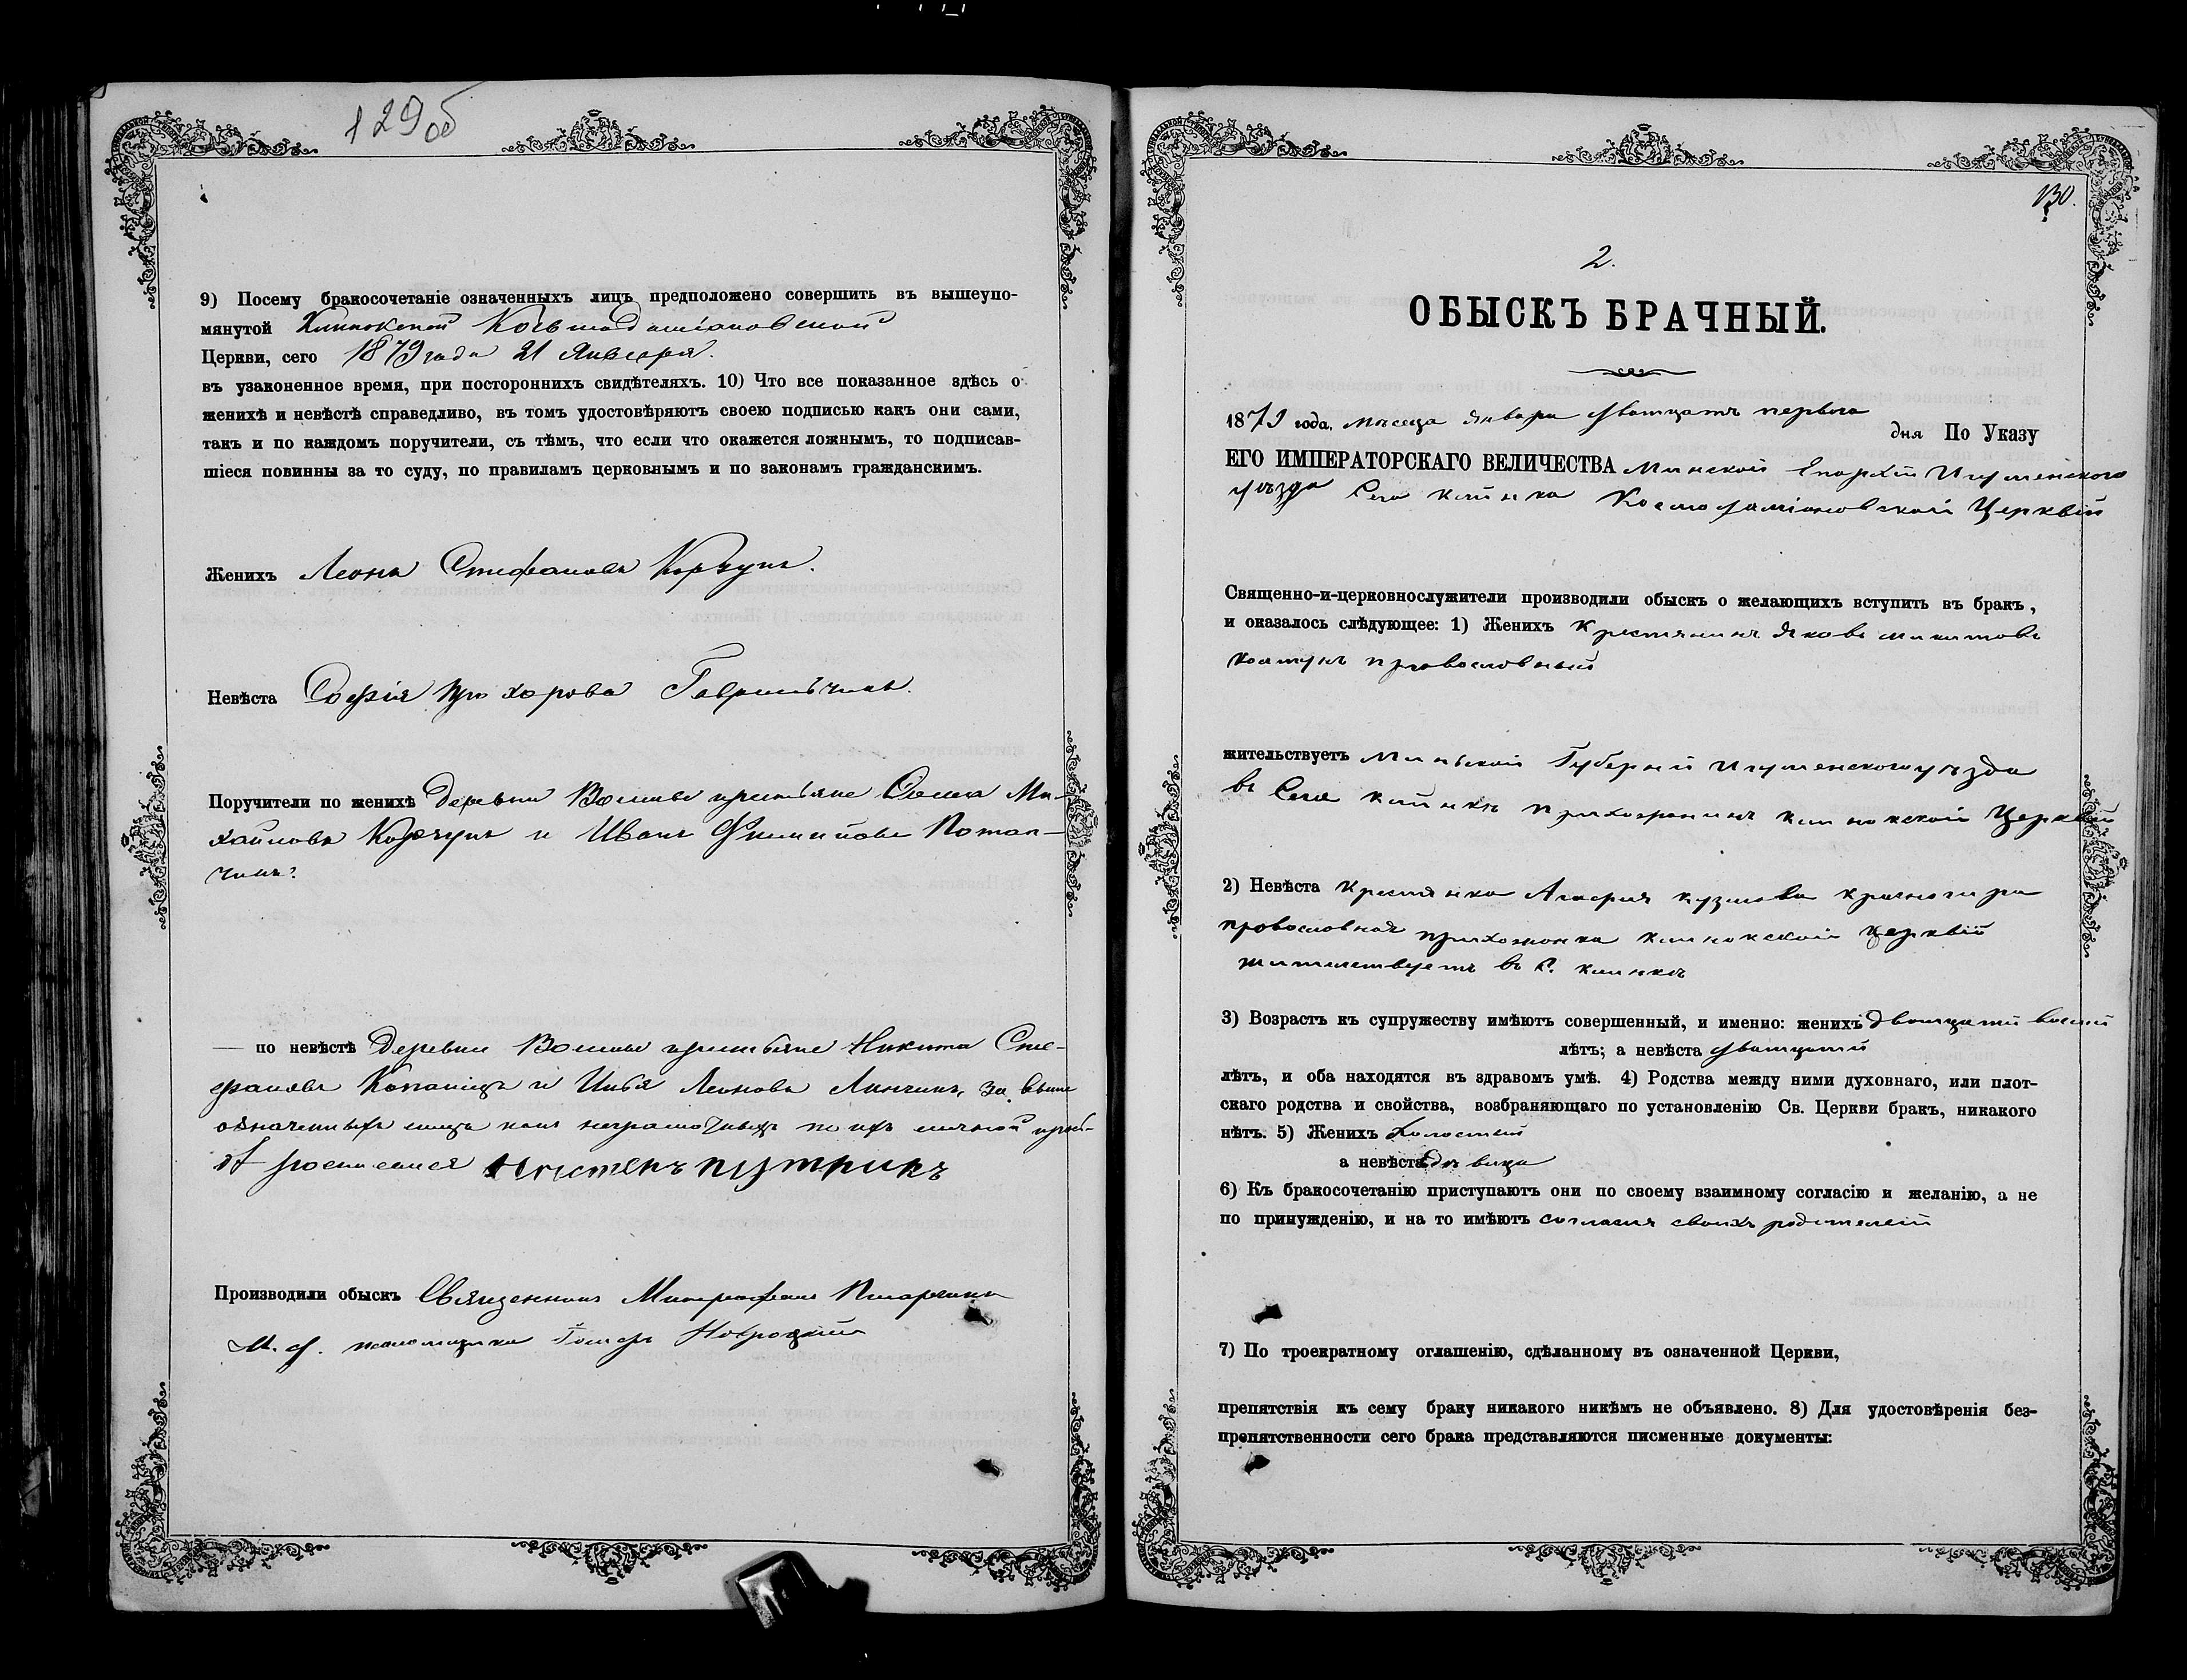 129об
9) Посему бракосочетаніе означенныхъ лицъ предположено совершить въ вышеупо-
мянутой Клинокской Косьмодаміановской
Церкви, сего 1879 года 21 Января.
въ узаконенное время, при постороннихъ свидѣтеляхъ. 10) Что все показанное здѣсь о
женихѣ и невѣстѣ справедливо, въ томъ удостовѣряютъ своею подписью какъ они сами,
такъ и по каждомъ поручители, съ тѣмъ, что если что окажется ложнымъ, то подписав-
шіеся повинны за то суду, по правиламъ церковнымъ и по законамъ гражданскимъ.
Женихъ Леонъ Стефановъ Корзунъ.
Невѣста Софія Прохорова
Поручители по женихѣ Деревни крестьяне Ми-
хайловъ и Иванъ Филиповъ Потап-
чикъ
— по невѣстѣ Деревни крестьяне Никита Сте-
фановъ и Леоновъ за выше
означенныхъ лицъ неграмотныхъ по ихъ личной прозь-
росписался
Производили обыскъ Священникъ
И. д. псаломщика
130.
2.
ОБЫСКЪ БРАЧНЫЙ.
1879 года, мѣсеца Января дватцать первого
дня По Указу
ЕГО ИМПЕРАТОРСКАГО ВЕЛИЧЕСТВА Минской Епархіи Игуменского
уѣзда Села Клинка Космодаміановской Церквіи
Священно-и-церковнослужители производили обыскъ о желающихъ вступить въ бракъ,
и оказалось слѣдующее: 1) Женихъ Крестянинъ Яковъ Микитовъ
православный
жительствуетъ Минской Губерніи Игуменского уѣзда
въ Селе Клинкѣ прихожанинъ Клинокской Церквіи
2) Невѣста Крестянка Кузмова
провославная прихожанка Клинокской церквіи
жителствуетъ въ С. Клинкѣ
3) Возрастъ къ супружеству имѣютъ совершенный, и именно: женихъ
лѣтъ; а невѣста дватцати
лѣтъ, и оба находятся въ здравомъ умѣ. 4) Родства между ними духовнаго, или плот-
скаго родства и свойства, возбраняющаго по установленію Св. Церкви бракъ, никакого
нѣтъ. 5) Женихъ холостый
а невѣста дѣвица
6) Къ бракосочетанію приступаютъ они по своему взаимному согласію и желанію, а не
по принужденію, и на то имѣютъ согласия своихъ родителей
7) По троекратному оглашенію, сдѣланному въ означенной Церкви,
препятствія къ сему браку никакого никѣмъ не объявлено. 8) Для удостовѣренія без-
препятственности сего брака представляются писменные документы: